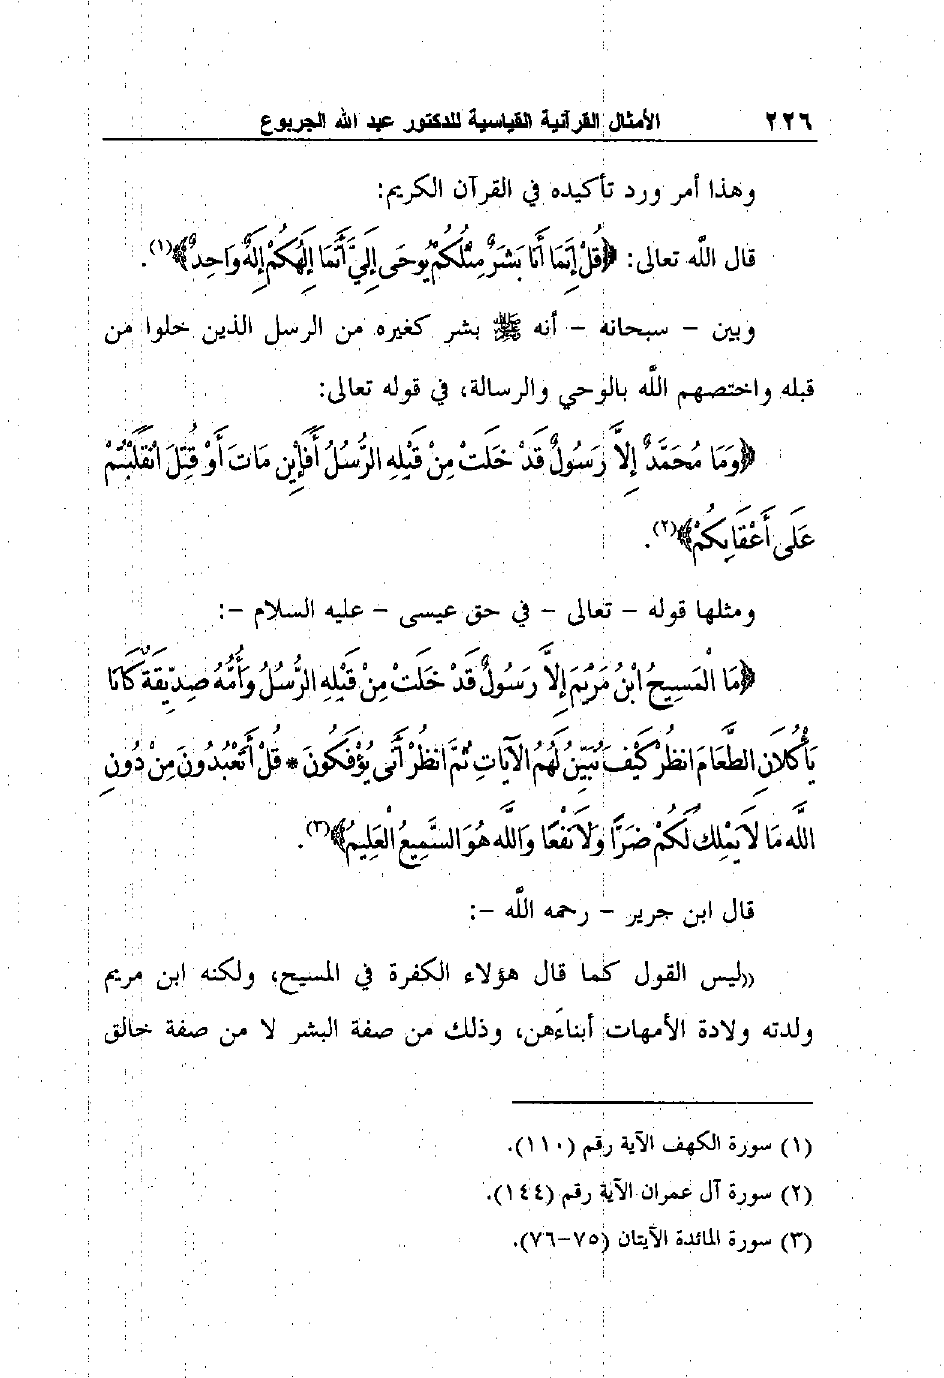 ٢٢٦ الأمثال القرآنية القياسية للدكتور عبد الله الجربوع
وهذا أمر ورد تأكيده في القرآن الكريم:
قال الله تعالى: ﴿قُلْ إِنَّمَا أَنَا بَشَرٌ مِثْلُكُمْ يُوحَى إِلَيَّ أَنَّمَا إِلَهُكُمْ إِلَهٌ وَاحِدٌ﴾(١).
وبين – سبحانه – أنه ﷺ بشر كغيره من الرسل الذين خلوا من
قبله واختصهم الله بالوحي والرسالة، في قوله تعالى:
﴿وَمَا مُحَمَّدٌ إِلاَّ رَسُولٌ قَدْ خَلَتْ مِنْ قَبْلِهِ الرُّسُلُ أَفَإِين مَاتَ أَوْ قُتِلَ انْقَلَبْتُمْ
عَلَى أَعْقَابِكُمْ﴾(٢).
ومثلها قوله – تعالى – في حق عيسى – عليه السلام –:
﴿مَا الْمَسِيحُ ابْنُ مَرْيَمَ إِلاَّ رَسُولٌ قَدْ خَلَتْ مِنْ قَبْلِهِ الرُّسُلُ وَأُمُّهُ صِدِّيقَةٌ كَانَا
يَأْكُلاَنِ الطَّعَامَ انظُرْ كَيْفَ نُبَيِّنُ لَهُمُ الآيَاتِ ثُمَّ انظُرْ أَنَّى يُؤْفَكُونَ * قُلْ أَتَعْبُدُونَ مِنْ دُونِ
اللَّه مَا لاَ يَمْلِك لَكُمْ ضَرًّا وَلاَ نَفْعًا وَاللَّه هُوَ السَّمِيعُ الْعَلِيمُ﴾(٣).
قال ابن جرير – رحمه الله –:
«ليس القول كما قال هؤلاء الكفرة في المسيح، ولكنه ابن مريم
ولدته ولادة الأمهات أبناءَهن، وذلك من صفة البشر لا من صفة خالق
(١) سورة الكهف الآية رقم (١١٠).
(٢) سورة آل عمران الآية رقم (١٤٤).
(٣) سورة المائدة الآيتان (٧٥–٧٦).